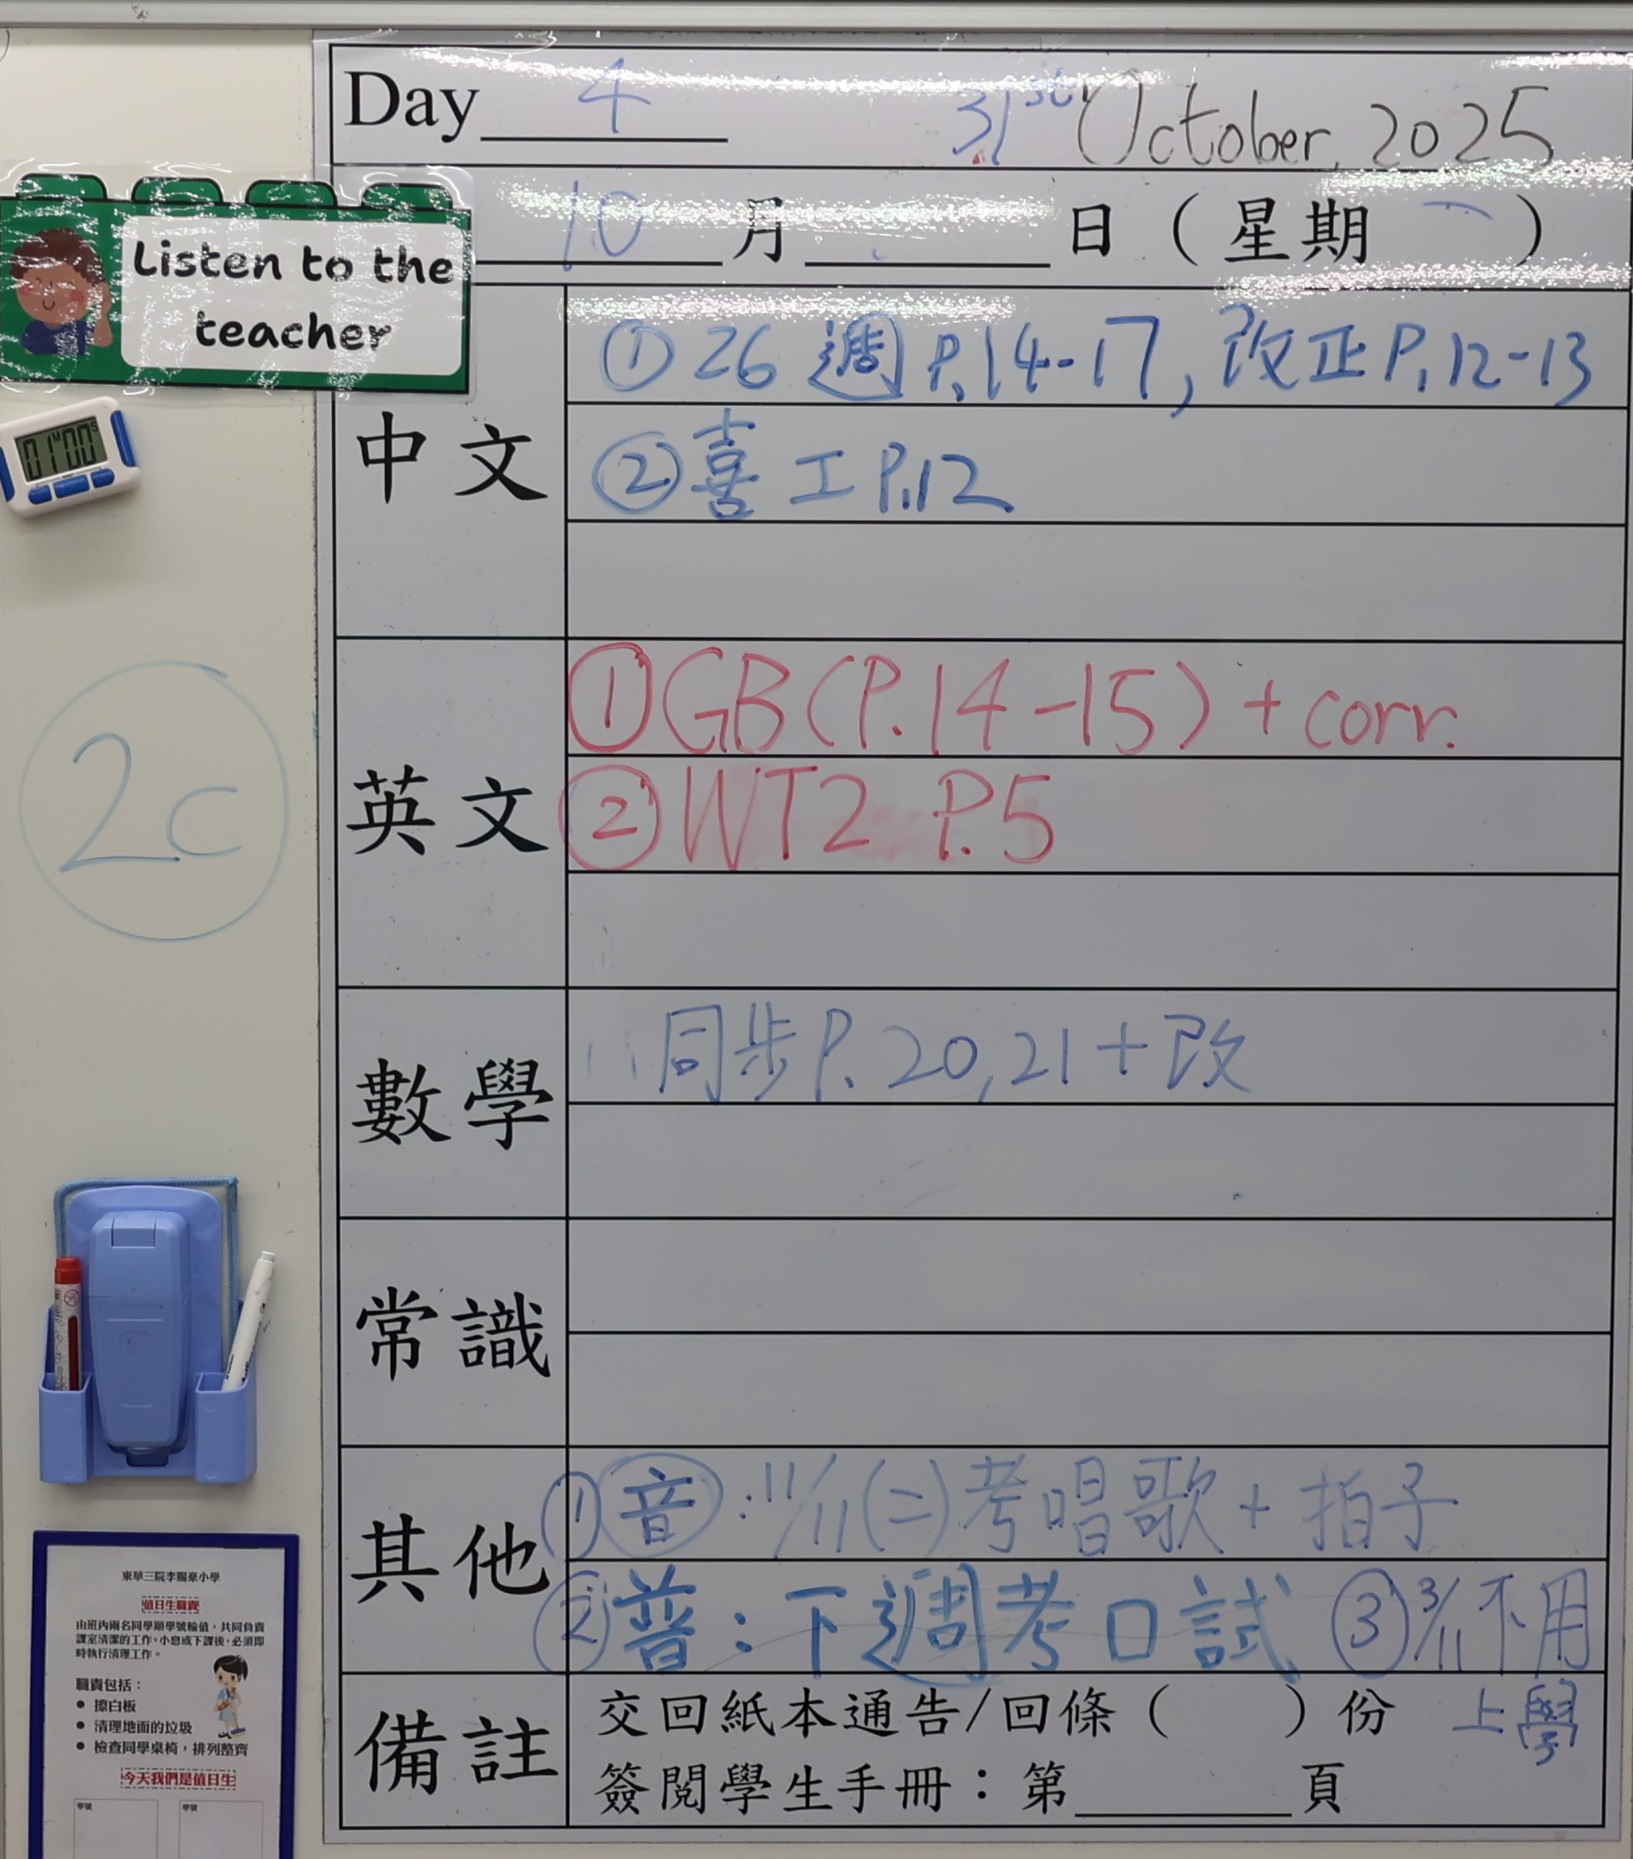 Day 4 31st October, 2025
10 月 日（星期 ）
Listen to the
teacher
中文
① 26 週 P.14-17, 改正 P.12-13
② 喜 工 P.12
英文
① GB (P.14-15) + corr.
② WT2 P.5
2C
數學
同步 P. 20, 21 + 改
常識
其他
① 音 : 11/11 (二) 考唱歌 + 拍子
② 普 : 下週考口試 ③ 3/11 不用
上學
備註
交回紙本通告/回條（ ）份
簽閱學生手冊：第 頁
01M00S
東華三院李賜豪小學
值日生職責
由班內兩名同學順學號輪值，共同負責
課室清潔的工作。小息或下課後，必須即
時執行清理工作。
職責包括：
● 擦白板
● 清理地面的垃圾
● 檢查同學桌椅，排列整齊
今天我們是值日生
學號 學號